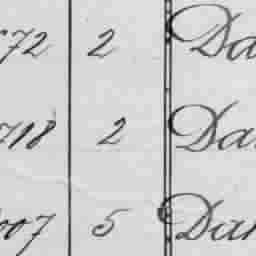 72 2 Da
718 2 Dan
007 5 Dan